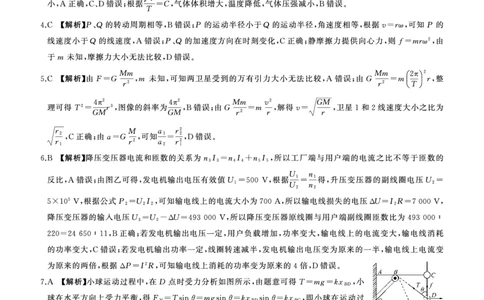 小,A正确,C、D错误;根据pV/T=C,气体体积增大,温度降低,气体压强减小,B错误。
4.C 【解析】P、Q的转动周期相等,B错误;P的运动半径小于Q的运动半径,角速度相等,根据v=rω,可知P的
线速度小于Q的线速度,A错误;P、Q的加速度方向在时刻变化,C正确;静摩擦力提供向心力,则f=mrω²,由
于m未知,摩擦力大小无法比较,D错误。
5.C 【解析】由F=G Mm/r²,m未知,可知两卫星受到的万有引力大小无法比较,A错误;由G Mm/r²=m(2π/T)²r,整
理可得T²=4π²/GM r³,图像的斜率为4π²/GM,B错误;由G Mm/r²=m v²/r,解得v=√(GM/r),卫星1和2线速度大小之比为
√(r₂/r₁),C正确;由a=G M/r²,可知a₁/a₂=r₂²/r₁²,D错误。
6.B 【解析】降压变压器电流和匝数的关系为n₃I₃=n₄I₄+n₅I₅,所以工厂端与用户端的电流之比不等于匝数的
反比,A错误;由图乙可得,发电机输出电压有效值U₁=500 V,根据U₁/U₂=n₁/n₂得,升压变压器的副线圈电压U₂=
5×10⁵ V,根据公式P₂=U₂I₂,可知输电线上的电流大小为700 A,所以输电线损失的电压ΔU=I₂R=7 000 V,
降压变压器的输入电压U₃=U₂-ΔU=493 000 V,所以降压变压器原线圈与用户端副线圈匝数比为493 000:
220=24 650:11,B正确;若发电机输出电压一定,用户负载增加,功率变大,输电线上的电流变大,输电线消耗
的功率变大,C错误;若发电机输出功率一定,线圈转速减半,发电机输出电压变为原来的一半,输电线上电流变
为原来的两倍,根据ΔP=I²R,可知输电线上消耗的功率变为原来的4倍,D错误。
7.A 【解析】小球运动过程中,在D点时受力分析如图所示,由题意可得T=mg=kx_BD,小
球在水平方向上受力平衡,得F_N=T sinθ=mg sinθ=kx_BD sinθ=kx_BC,即小球在运动过
A B C
T
D